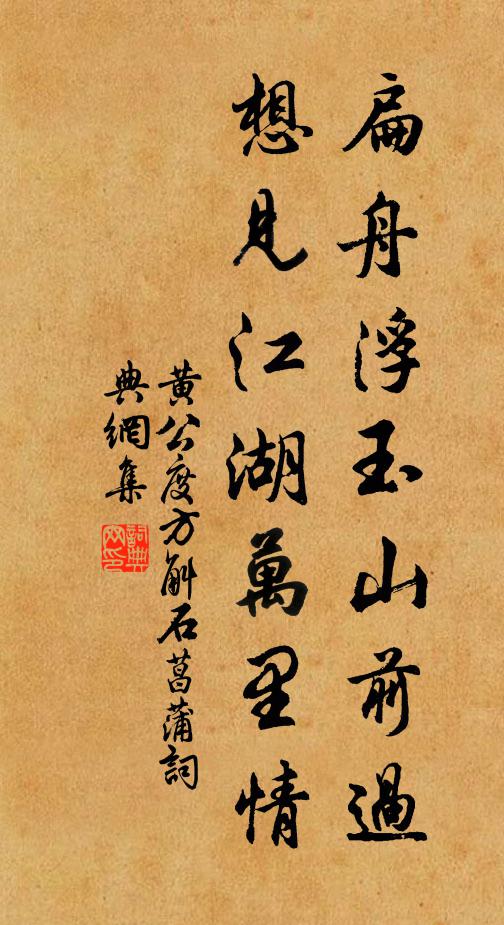 扁舟浮玉山前過
想見江湖萬里情
黄公度方斛石菖蒲詞
典網集
詞典網印